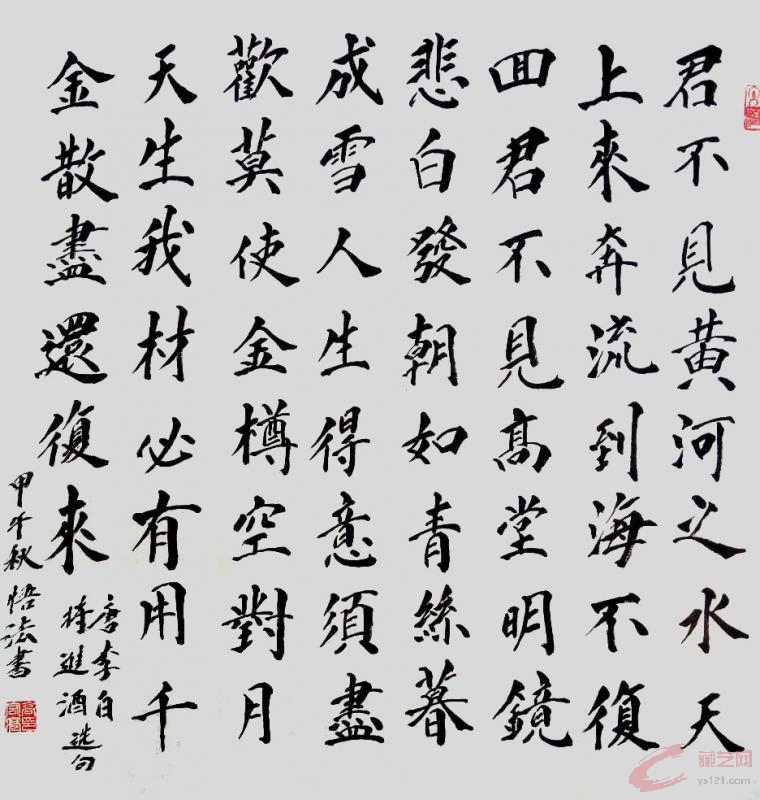 君不見黄河之水天
上來奔流到海不復
回君不見高堂明鏡
悲白發朝如青絲暮
成雪人生得意須盡
歡莫使金樽空對月
天生我材必有用千
金散盡還復來
唐李白
將進酒选句
甲午秋悟法書
藏艺网
ys121.com